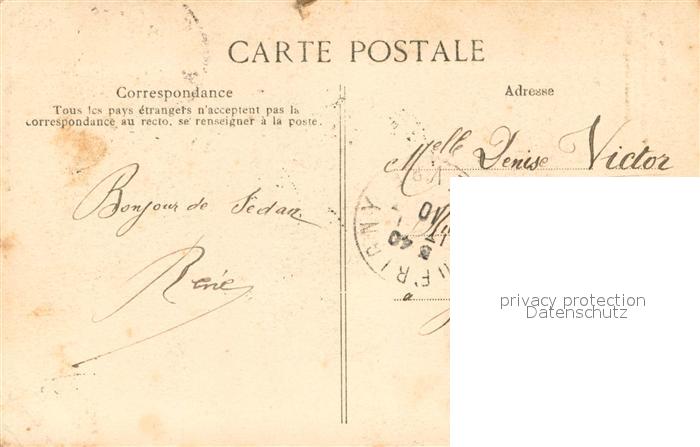 CARTE POSTALE
Correspondance
Tous les pays étrangers n'acceptent pas la
correspondance au recto, se renseigner à la poste.
Adresse
Melle Denise Victor
Bonjour de Sedan
René
à
privacy protection
Datenschutz